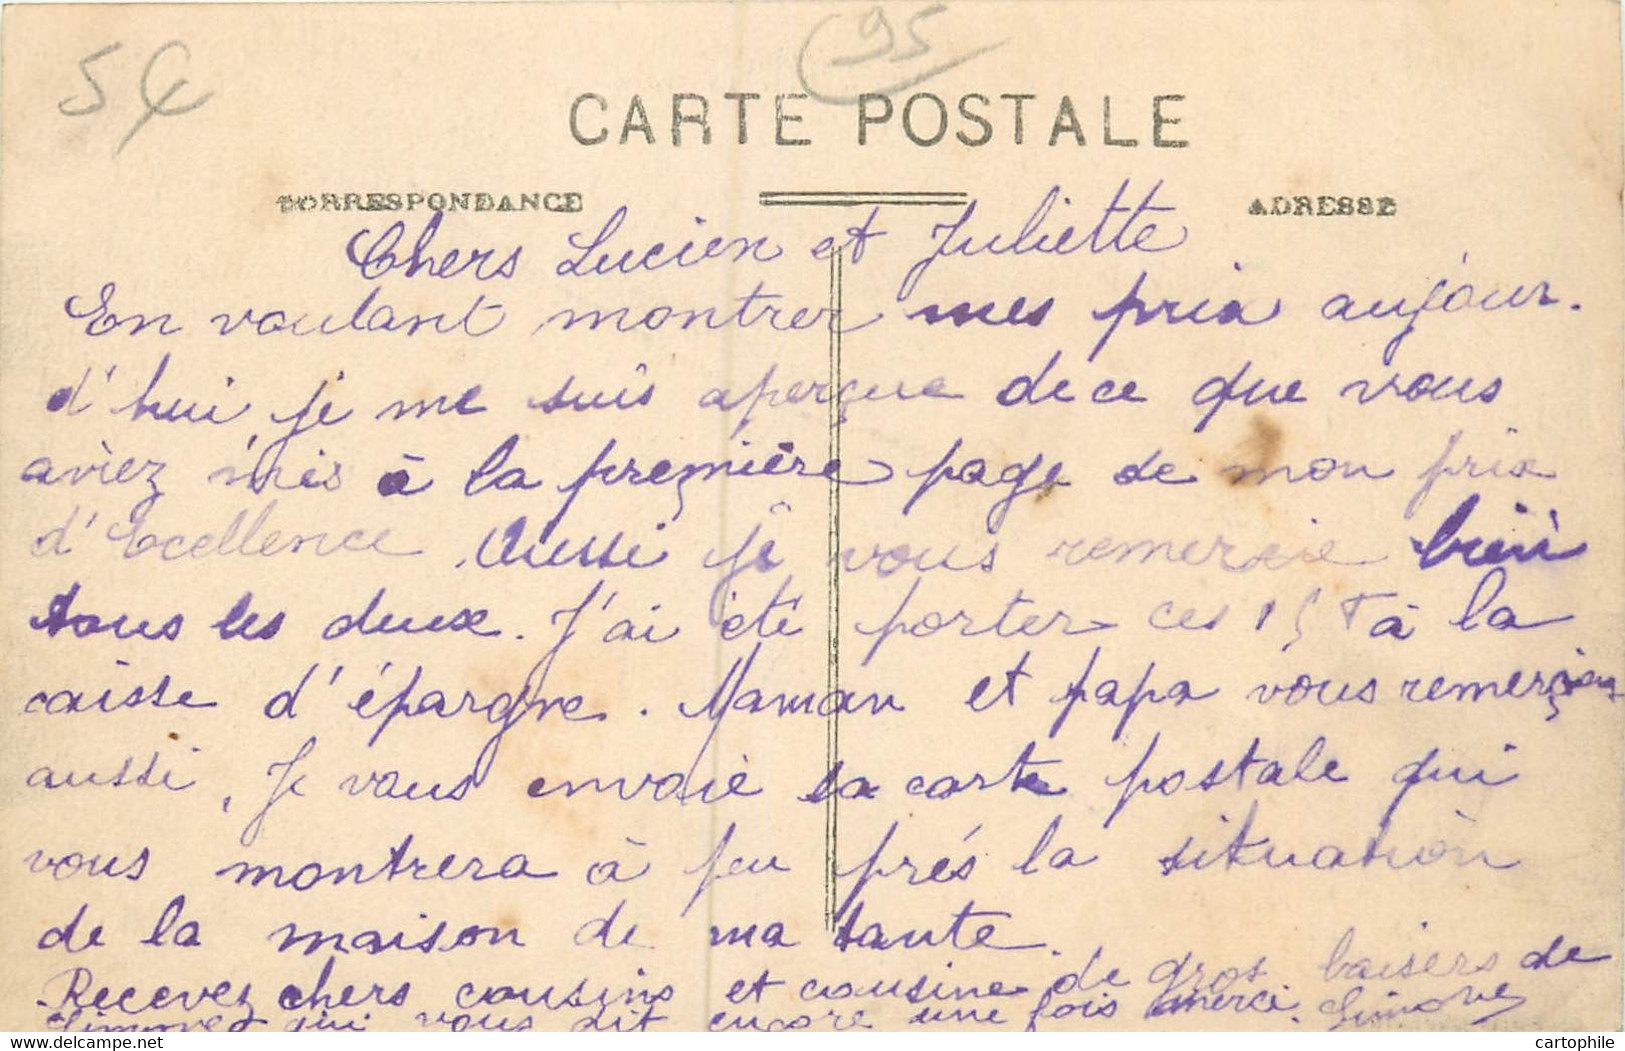 95
CARTE POSTALE
CORRESPONDANCE
ADRESSE
Chers Lucien et Juliette
En voulant montrer mes prix aujour.
d'hui, je me suis aperçue de ce que vous
aviez mis à la première page de mon prix
d'Ecellence. Aussi je vous remercie bien
tous les deux. J'ai été porter ces 15 F à la
caisse d'épargne. Maman et papa vous remercions
aussi, Je vous envoie la carte postale qui
vous montrera à peu près la situation
de la maison de ma tante.
Recevez chers cousins et cousine de gros baisers de
Simone qui vous dit encore une fois merci. Simone
cartophile